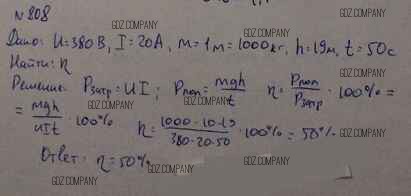 N 808 GDZ.COMPANY
GDZ.COMPANY
Дано: U=380 В, I=20А, m=1т=1000кг, h=19м, t=50с
Найти: η GDZ.COMPANY
Решение: Pзатр=UI; Pпол=mgh/t η=Pпол/Pзатр·100%=
GDZ.COMPANY
=mgh/UIt·100% η=1000·10·19/380·20·50·100%=50%
GDZ.COMPANY GDZ.COMPANY
Ответ: η=50%
GDZ.COMPANY GDZ.COMPANY